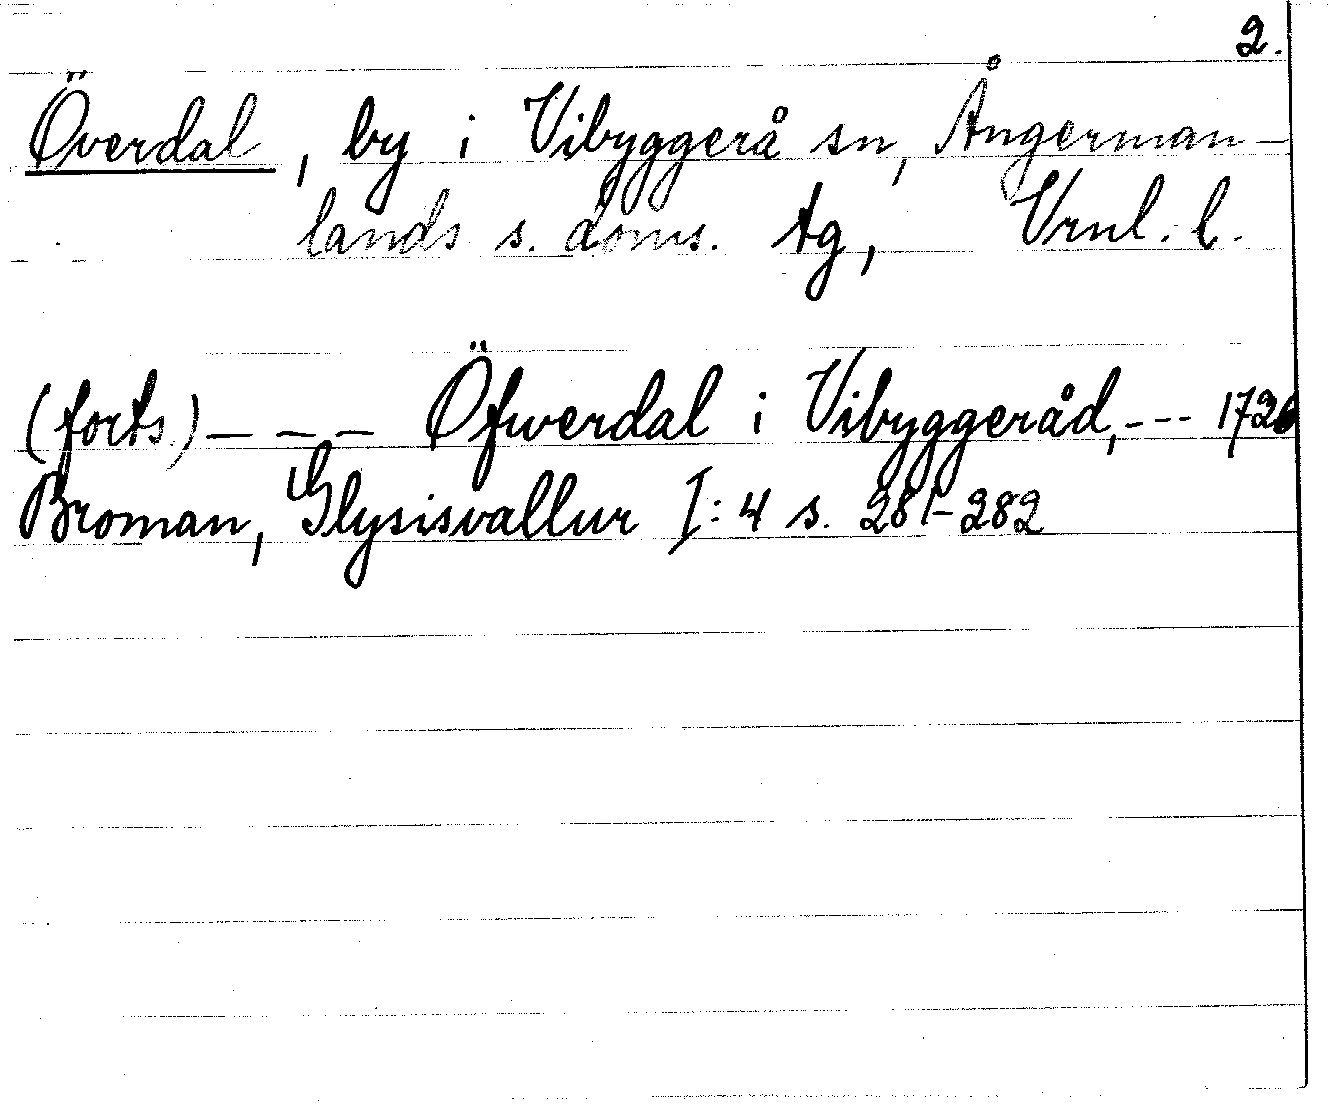 2.
Överdal, by i Vibyggerå sn, Ångerman-
lands s. doms. tg, Vrnl. l.
(forts.) – – – Öfwerdal i Vibyggeråd, --- 1726
Broman, Glysisvallur I:4 s. 281-282